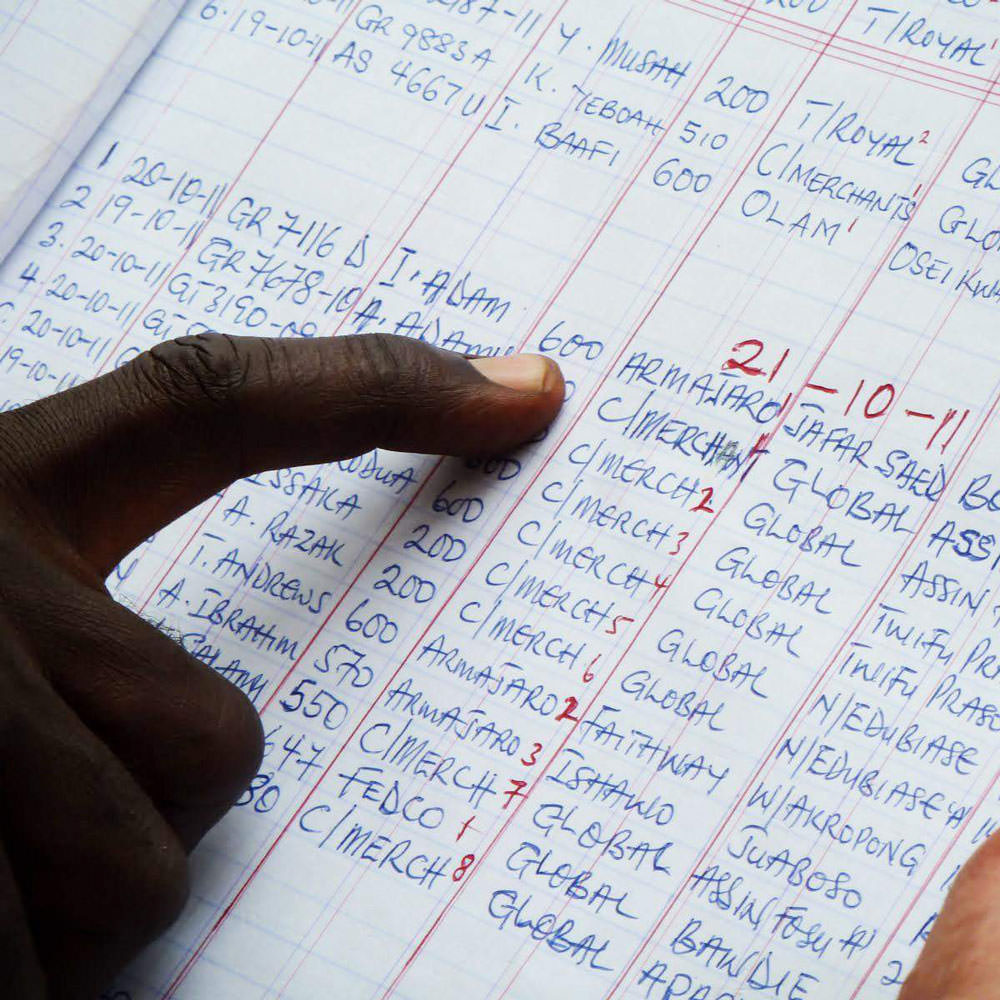 T/ROYAL
2187-11 Y. MUSAH 200 T/ROYAL 2
GR 9883 A K. YEBOAH 510 C/MERCHANTS 1
6. 19-10-11 AS 4667 U I. BAAFI 600 OLAM 1 OSEI
21-10-11
1 20-10-11 GR 7116 D I. ADAM 600 ARMAJARO 1 JAFAR SAED
2 19-10-11 GR 7678-10 A. ADAMU C/MERCHANT 1 GLOBAL
3. 20-10-11 GT 3190-09 C/MERCH 2 GLOBAL ASSIN
4. 20-10-11 GT C/MERCH 3 GLOBAL TWIFU
20-10-11 600 C/MERCH 4 GLOBAL TWIFU
19-10-11 ISSAKA 200 C/MERCH 5 GLOBAL N/EDUBIASE
A. RAZAK 200 C/MERCH 6 GLOBAL N/EDUBIASE 'A'
T. ANDREWS 600 ARMAJARO 2 FAITHWAY W/AKROPONG
A. IBRAHIM 570 ARMAJARO 3 ISHAWO JUABOSO
550 C/MERCH 7 GLOBAL ASSIN FOSU 'A'
647 FEDCO 1 GLOBAL BAWDIE
C/MERCH 8 GLOBAL